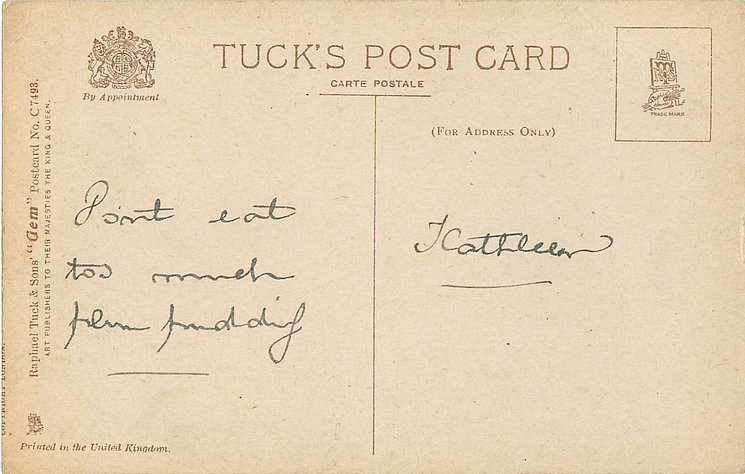 TUCK'S POST CARD
CARTE POSTALE
By Appointment
(For Address Only)
TRADE MARK
Raphael Tuck & Sons' "Gem" Postcard No. C7493.
ART PUBLISHERS TO THEIR MAJESTIES THE KING & QUEEN.
COPYRIGHT LONDON.
Don't eat
too much
plum pudding
Kathleen
Printed in the United Kingdom.